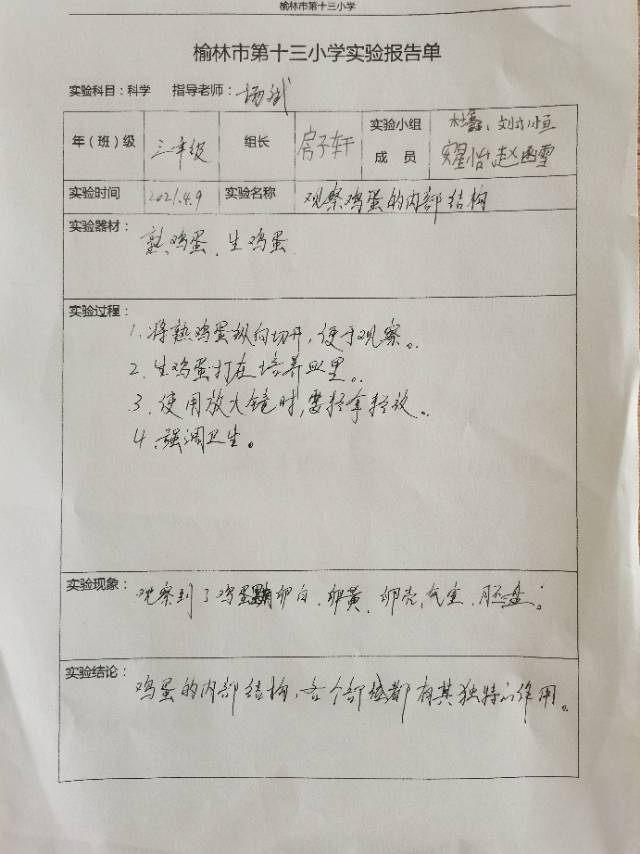 榆林市第十三小学
榆林市第十三小学实验报告单
实验科目：科学 指导老师：杨斌
年（班）级 三年级 组长 房子轩 实验小组成员 刘 恒
怡、赵函雪
实验时间 2021.4.9 实验名称 观察鸡蛋的内部结构
实验器材：
熟鸡蛋、生鸡蛋
实验过程：
1、将熟鸡蛋纵向切开，便于观察。
2、生鸡蛋打在培养皿里。
3、使用放大镜时，要轻拿轻放。
4、强调卫生。
实验现象： 观察到了鸡蛋 卵白、卵黄、卵壳、气室、胚盘。
实验结论： 鸡蛋的内部结构，各个部位都有其独特的作用。